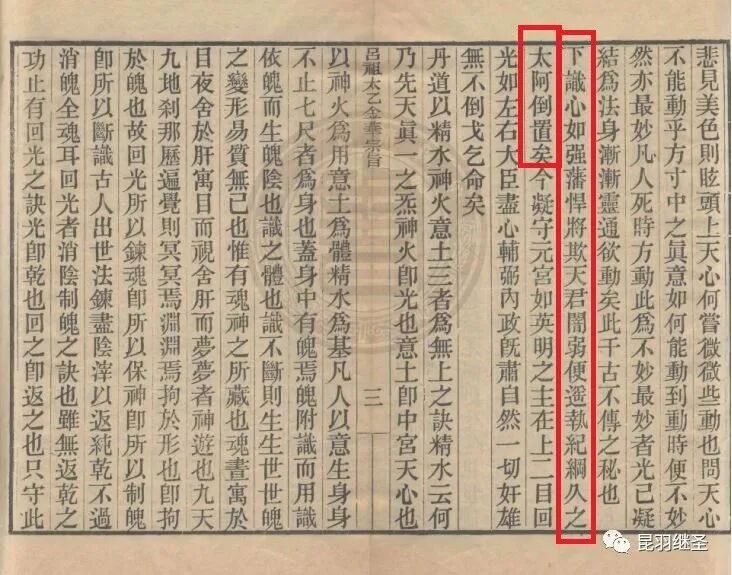 悲見美色則眩頭上天心何嘗微微些動也問天心
不能動乎方寸中之眞意如何能動到動時便不妙
然亦最妙凡人死時方動此爲不妙最妙者光已凝
結爲法身漸漸靈通欲動矣此千古不傳之秘也
下識心如强藩悍將欺天君闇弱便遥執紀綱久之
太阿倒置矣今凝守元宮如英明之主在上二目回
光如左右大臣盡心輔弼內政旣肅自然一切奸雄
無不倒戈乞命矣
丹道以精水神火意土三者爲無上之訣精水云何
乃先天眞一之炁神火卽光也意土卽中宮天心也
呂祖太乙金華宗旨
三
以神火爲用意土爲體精水爲基凡人以意生身身
不止七尺者爲身也蓋身中有魄焉魄附識而用識
依魄而生魄陰也識之體也識不斷則生生世世魄
之變形易質無已也惟有魂神之所藏也魂晝寓於
目夜舍於肝寓目而視舍肝而夢夢者神遊也九天
九地刹那歷遍覺則冥冥焉淵淵焉拘於形也卽拘
於魄也故回光所以鍊魂卽所以保神卽所以制魄
卽所以斷識古人出世法鍊盡陰滓以返純乾不過
消魄全魂耳回光者消陰制魄之訣也雖無返乾之
功止有回光之訣光卽乾也回之卽返之也只守此
昆羽继圣